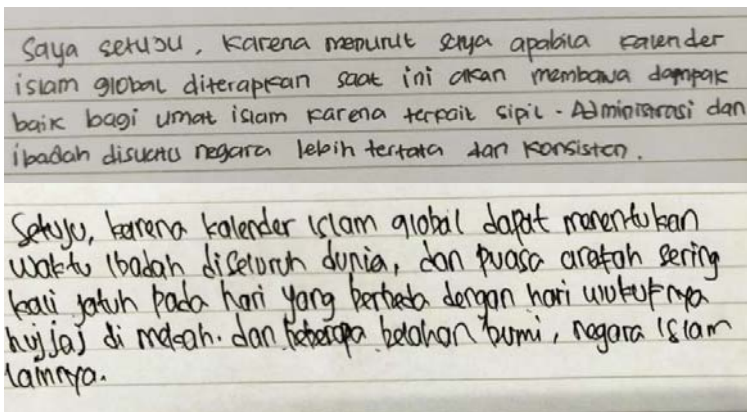 Saya setuju, karena menurut saya apabila kalender
islam global diterapkan saat ini akan membawa dampak
baik bagi umat islam karena terkait sipil - Administrasi dan
ibadah disuatu negara lebih tertata dan konsisten.
Setuju, karena kalender islam global dapat menentukan
waktu ibadah diseluruh dunia, dan puasa arafah sering
kali jatuh pada hari yang berbeda dengan hari wukufnya
hujjaj di mekah. dan beberapa belahan bumi, negara islam
lainnya.